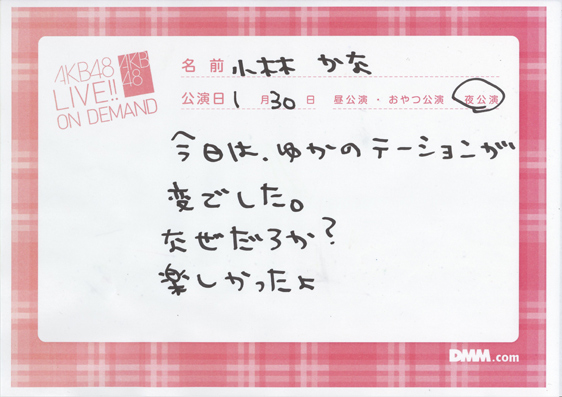 AKB48
LIVE!!
ON DEMAND
AKB
48
名前 小林 かな
公演日 1月30日 昼公演・おやつ公演 夜公演
今日は、ゆかのテーションが
変でした。
なぜだろか?
楽しかったよ
DMM.com